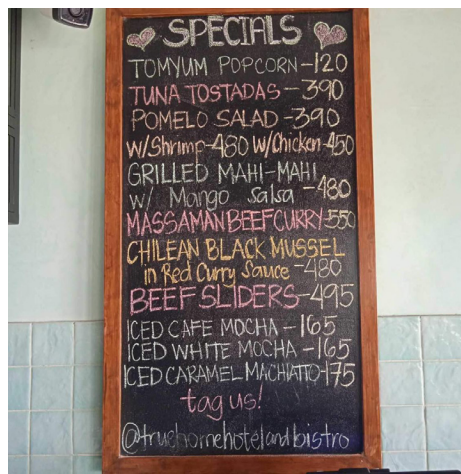 SPECIALS
TOMYUM POPCORN-120
TUNA TOSTADAS-390
POMELO SALAD-390
w/Shrimp-480 w/Chicken-450
GRILLED MAHI-MAHI
w/ Mango Salsa -480
MASSAMAN BEEF CURRY-550
CHILEAN BLACK MUSSEL
in Red Curry Sauce -480
BEEF SLIDERS-495
ICED CAFE MOCHA-165
ICED WHITE MOCHA-165
ICED CARAMEL MACHIATTO-175
tag us!
@truehomehotelandbistro